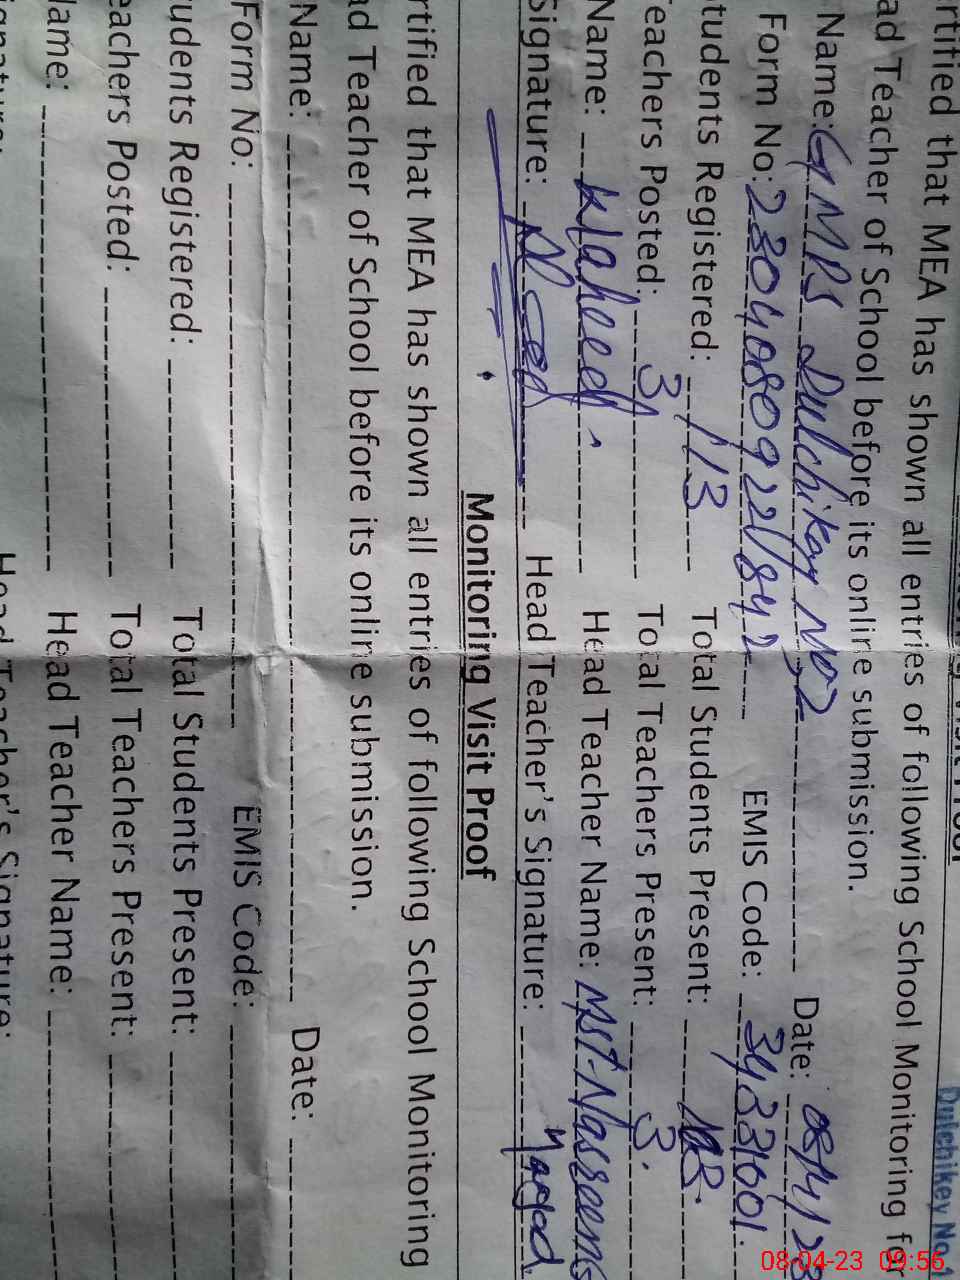 Dulchikey No.1
rtified that MEA has shown all entries of following School Monitoring
ad Teacher of School before its online submission.
Name: GMPS Dulchikey No,2 Date: 08/4/23
Form No: EMIS Code: 34331001.
tudents Registered: 113 Total Students Present:
eachers Posted: 3 Total Teachers Present: 3.
Name: Waheed Head Teacher Name: Mst. Nasreen
Signature: Head Teacher's Signature:
Monitoring Visit Proof
rtified that MEA has shown all entries of following School Monitoring
ad Teacher of School before its online submission.
Name: Date:
Form No: EMIS Code:
udents Registered: Total Students Present:
eachers Posted: Total Teachers Present:
Name: Head Teacher Name:
ignature: Head Teacher's Signature:
08-04-23 09:56